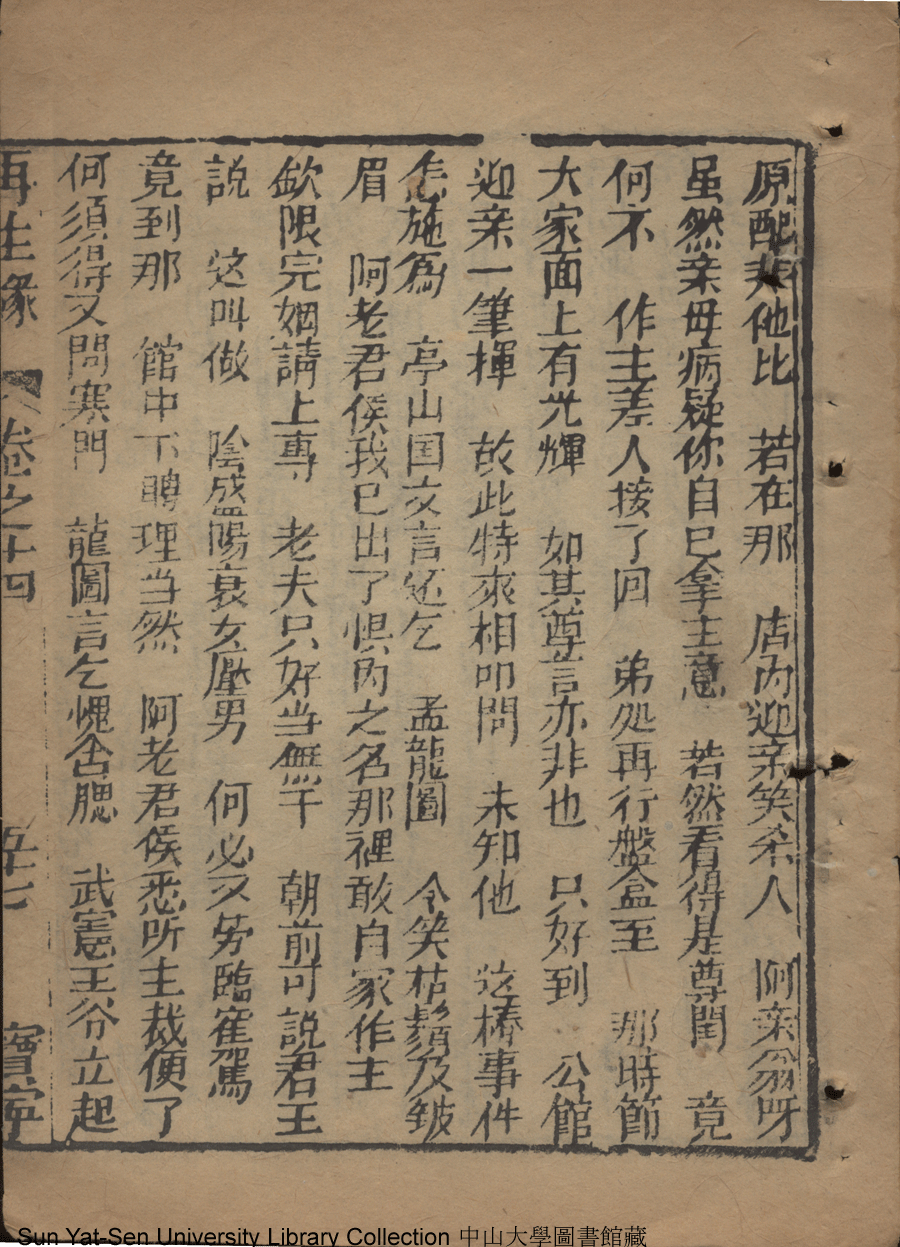 原配非他比　若在那　店内迎亲笑杀人　阿亲翁呀
虽然亲母病疑你自已拿主意　若然看得是尊閨　竟
何不　作主差人接了回　弟処再行盤盒至　那時節
大家面上有光輝　如其尊言亦非也　只好到　公館
迎亲一筆揮　故此特來相叩問　未知他　这樁事件
怎施為　亭山国丈言还乞　孟龍圖　令笑枯鬚及皱
眉　阿老君侯我已出了惧内之名那裡敢自家作主
欽限完姻請上專　老夫只好当無干　朝前可説君王
説　这叫做　陰盛陽衰女壓男　何必又劳臨寉駕
竟到那　館中下聘理当然　阿老君侯悉听主裁便了
何須得又問寒門　龍圖言乞惺舍腮　武憲王爷立起
再生缘　卷之十四　五十七　寶寧
Sun Yat-Sen University Library Collection 中山大學圖書館藏